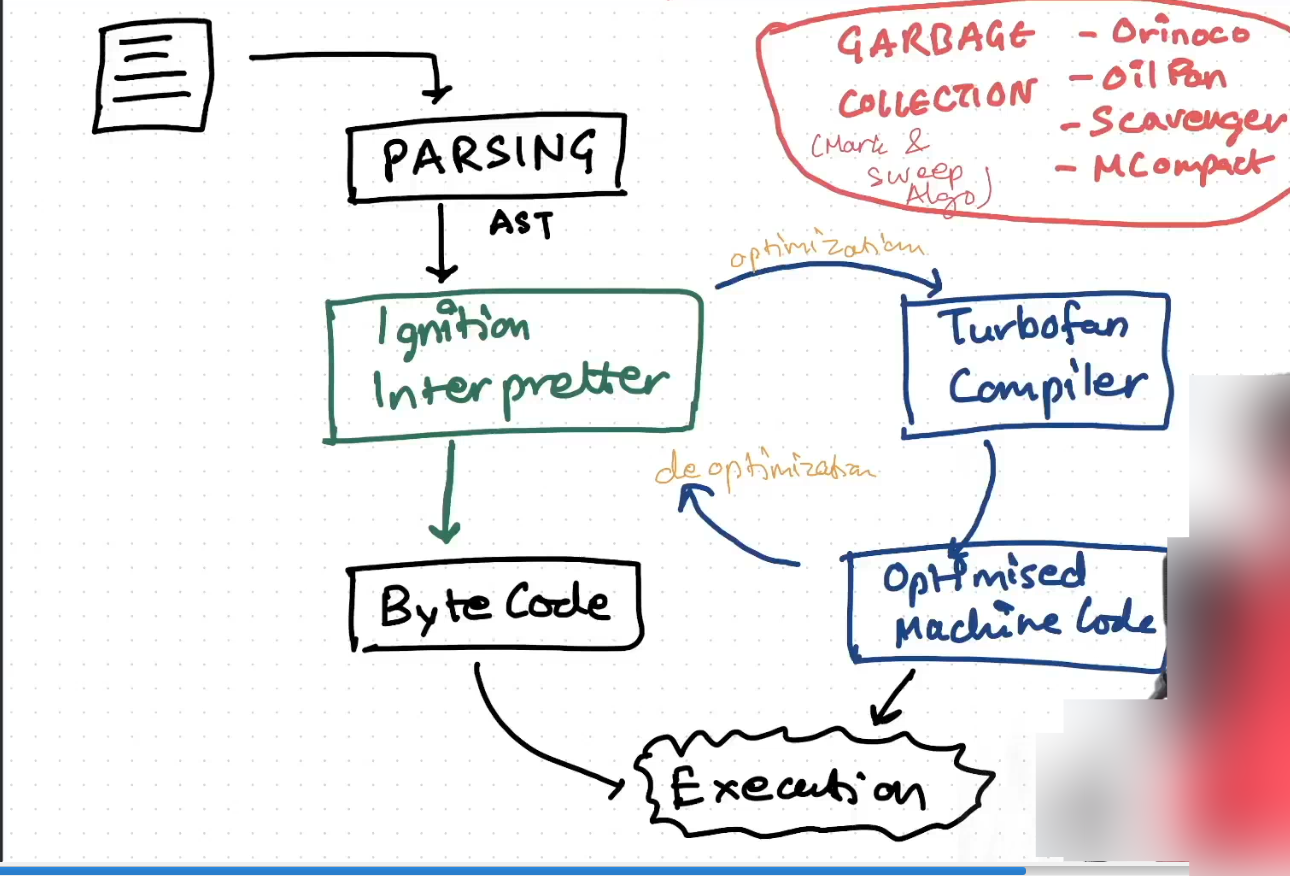 GARBAGE
COLLECTION
(Mark &
sweep
Algo)
- Orinoco
- Oil Pan
- Scavenger
- MCompact
PARSING
AST
optimization
Ignition
Interpretter
Turbofan
Compiler
de optimization
Byte Code
Optimised
Machine Code
Execution